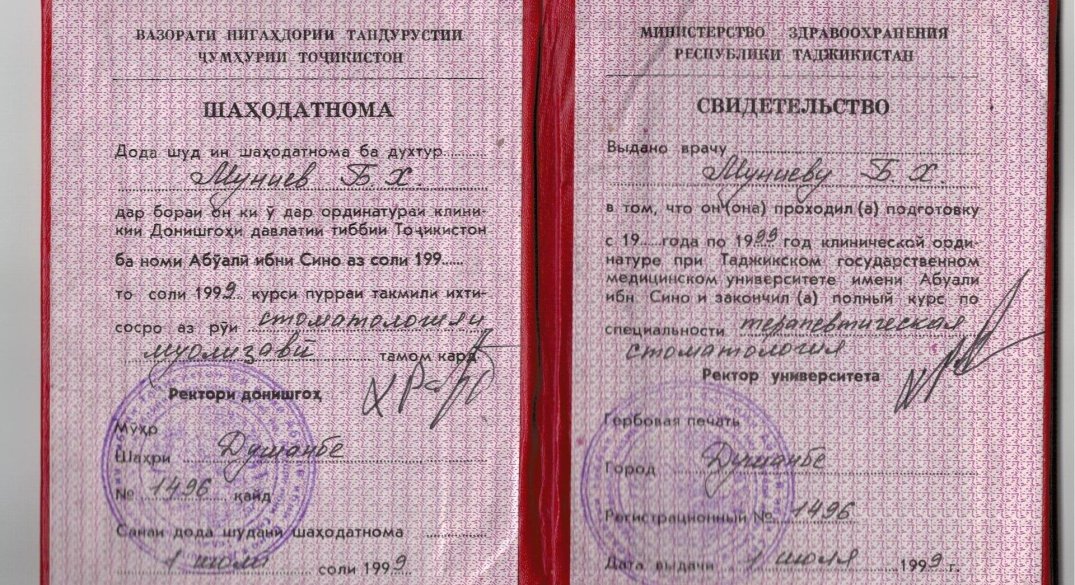 ВАЗОРАТИ НИГАҲДОРИИ ТАНДУРУСТИИ
ҶУМҲУРИИ ТОҶИКИСТОН
ШАҲОДАТНОМА
Дода шуд ин шаҳодатнома ба духтур
Муниев Б Х.
дар бораи он ки ӯ дар ординатураи клини-
кии Донишгоҳи давлатии тиббии Тоҷикистон
ба номи Абӯалӣ ибни Сино аз соли 199......
то соли 1999. курси пурраи такмили ихти-
сосро аз рӯи стоматологияи
муолиҷавӣ тамом кард
Ректори донишгоҳ
Муҳр
Шаҳри Душанбе
№ 1496 қайд
Санаи дода шудани шаҳодатнома
1 июли соли 1999
МИНИСТЕРСТВО ЗДРАВООХРАНЕНИЯ
РЕСПУБЛИКИ ТАДЖИКИСТАН
СВИДЕТЕЛЬСТВО
Выдано врачу
Муниеву Б Х.
в том, что он (она) проходил (а) подготовку
с 19.....года по 1999 год клинической орди-
натуре при Таджикском государственном
медицинском университете имени Абуали
ибн Сино и закончил (а) полный курс по
специальности терапевтическая
стоматология
Ректор университета
Гербовая печать
Город Душанбе
Регистрационный № 1496
Дата выдачи 1 июля 1999 г.